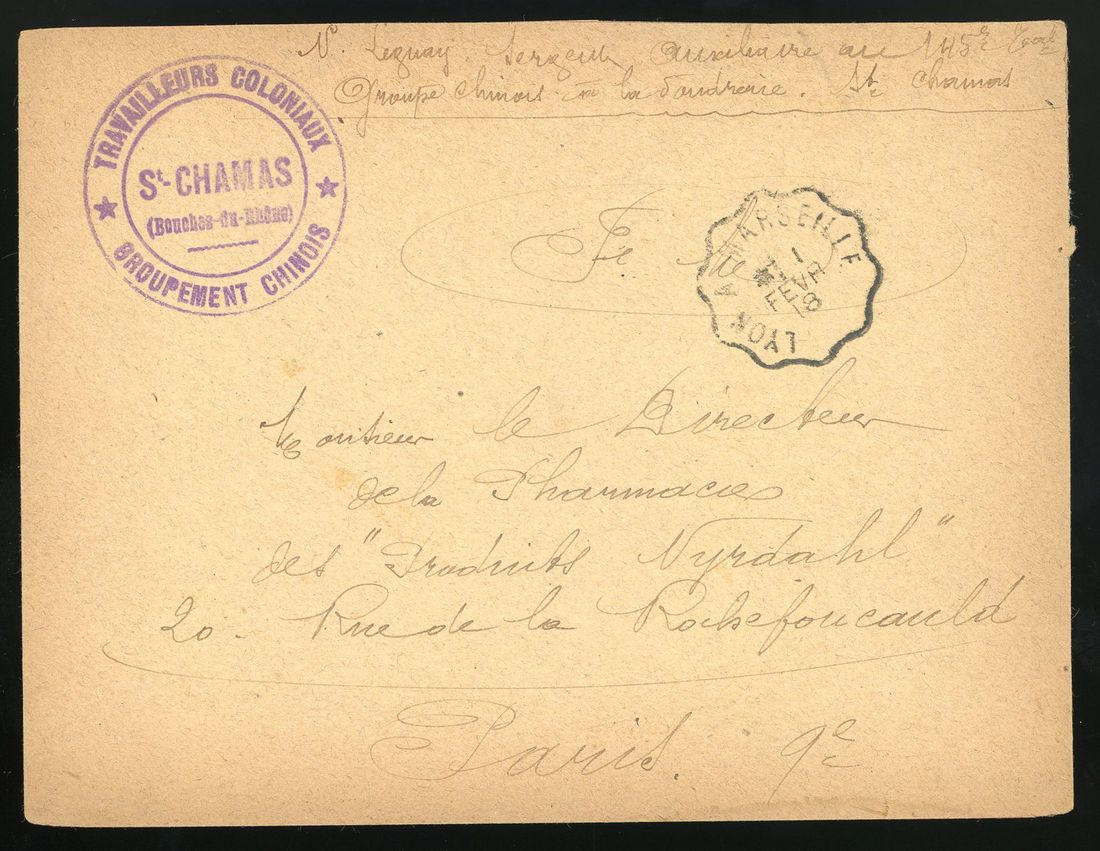 N. Leguay Sergent auxiliaire au 145e
Groupe chinois à la Poudrerie. St Chamas
TRAVAILLEURS COLONIAUX
St-CHAMAS
(Bouches-du-Rhône)
GROUPEMENT CHINOIS
F. M.
MARSEILLE A LYON
1
FEVR
18
Monsieur le Directeur
de la Pharmacie
des "Produits Nyrdahl"
20 - Rue de la Rochefoucauld
Paris. 9e